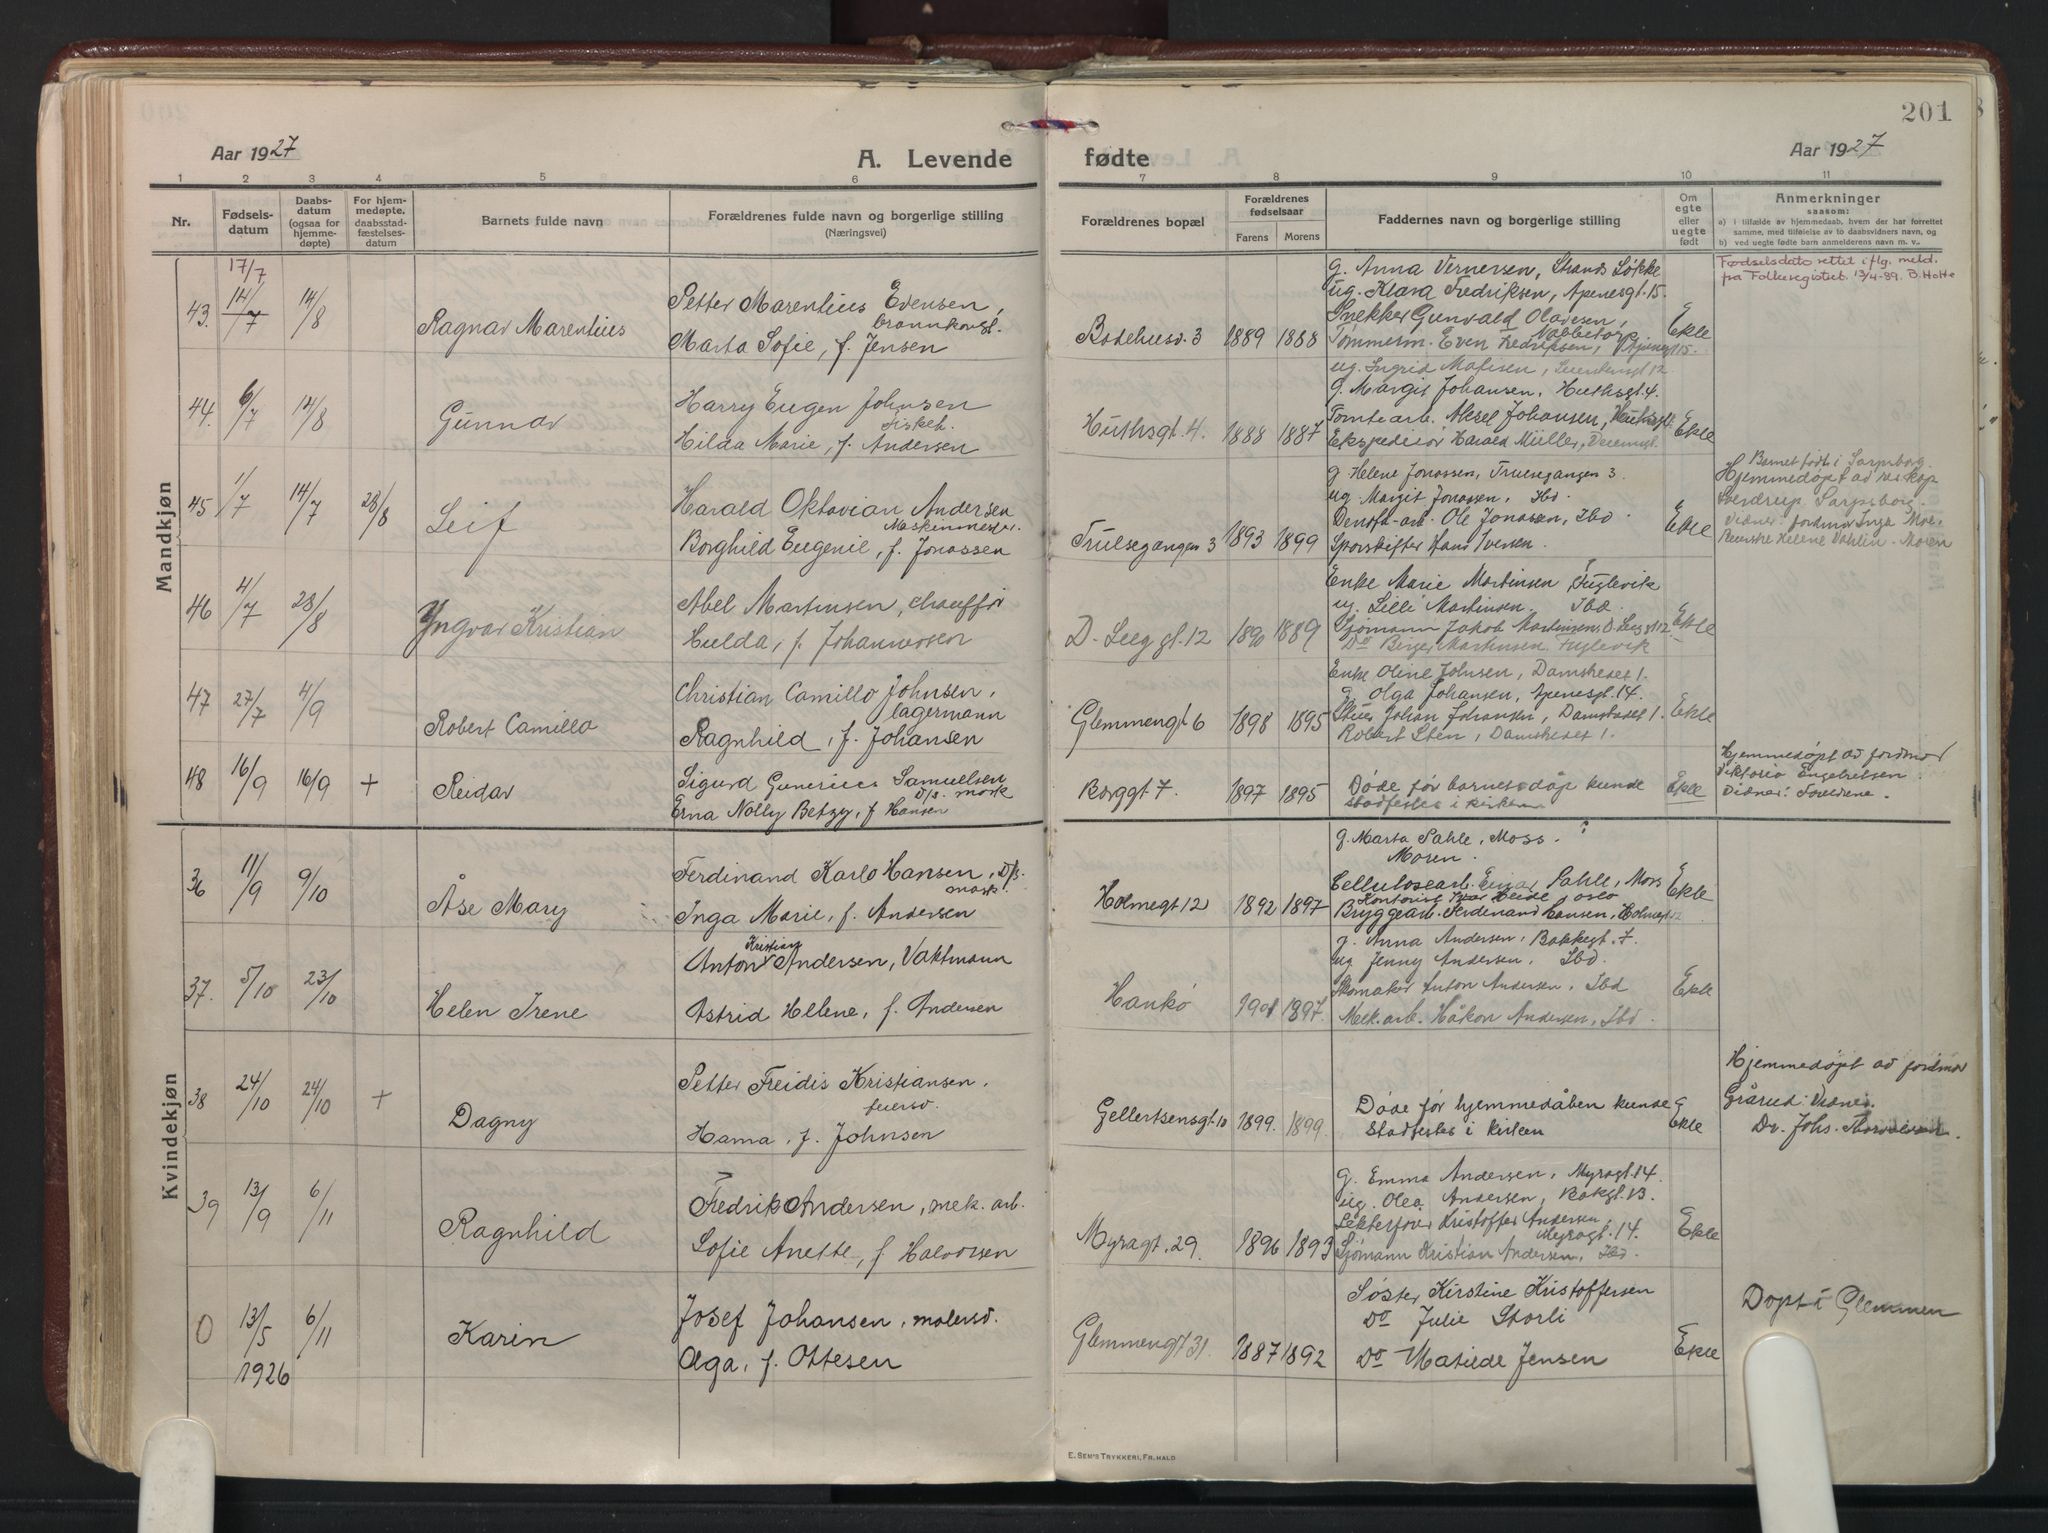 201
Aar 1927
A. Levende
fødte
Aar 1927
1 2 3 4 5 6 7 8 9 10 11
Nr.
Fødsels-
datum
Daabs-
datum
(ogsaa for
hjemme-
døpte)
For hjem-
medøpte,
daabsstad-
fæstelses-
datum
Barnets fulde navn
Forældrenes fulde navn og borgerlige stilling
(Næringsvei)
Forældrenes bopæl
Forældrenes
fødselsaar
Farens Morens
Faddernes navn og borgerlige stilling
Om
egte
eller
uegte
født
Anmerkninger
saasom:
a) i tilfælde av hjemmedaab, hvem der har forrettet
samme, med tilføielse av to daabsvidners navn, og
b) ved uegte fødte barn anmelderens navn m. v.,
Mandkjøn
17/7
43. 14/7 14/8
Ragnar Marentius
Petter Marentius Evensen,
brannkonst.
Marta Sofie, f. Jensen
Bodehusv. 3 1889 1888
g. Anna Vernersen, Strands Løkke
ug. Klara Fredriksen, Apenesgt. 15.
Snekker Gunvald Olavesen,
Nabbetorp
Tømmerm. Even Fredriksen, Apenesgt 15.
Ekte
Fødselsdato rettet iflg. meld.
fra Folkeregistret. 13/4-89. B. Holte
44. 6/7 14/8
Gunnar
Harry Eugen Johnsen
fiskeh.
Hilda Marie, f. Andersen
Huthsgt. 4. 1888 1887
ug. Ingrid Matisen,
g. Margit Johansen, Huthsgt. 4.
Tomtearb. Aksel Johansen, Huthsgt.
Ekspeditør Harald Müller,
Ekte
45 1/7 14/7 28/8
Leif
Harald Oktavian Andersen
Maskinmester.
Borghild Eugenie, f. Jonassen
Trulsegangen 3 1893 1899
g. Helene Jonassen, Trulsegangen 3.
ug. Margit Jonassen, Ibd.
Denofa-arb. Ole Jonassen, Ibd.
Sporskifter Hans Iversen.
Ekte
Barnet født i Sarpsborg.
Hjemmedøpt av res kap
Sverdrup Sarpsborg.
Vidner: Jordmor Inga Moe,
Helene Dahlin. Moren
46 4/7 28/8
Yngvar Kristian
Abel Martinsen, chauffør
Hulda, f. Johannessen
D. Leeggt. 12 1890 1889
Enke Marie Martinsen Fuglevik
ug. Lilli Martinsen. Ibd.
Sjømann Jakob Martinsen, D. Leegt 12
Do Birger Martinsen. Fuglevik
Ekte
47 27/7 4/9
Robert Camillo
Christian Camillo Johnsen,
lagermann
Ragnhild, f. Johansen
Glemmengt 6 1898 1895
Enke Oline Johnsen, Damstedet 1.
g. Olga Johansen, Apenesgt. 14.
Stuer Johan Johansen, Damstedet 1.
Robert Sten, Damstedet 1.
Ekte
48 16/9 16/9 +
Reidar
Sigurd Gunerius Samuelsen
D/s. mask
Erna Nolly Betzy, f Hansen
Borggt 7. 1897 1895
Døde før barnets dåp kunde
stadfestes i kirken
Ekte
Hjemmedøpt av jordmor
Viktoria Engebretsen.
Vidner: Foreldrene.
Kvindekjøn
36 11/9 9/10
Åse Mary
Ferdinand Karlo Hansen, D/s.
mask.
Inga Marie, f. Andersen
Holmegt 12 1892 1897
g. Marta Dahle, Moss.
Moren.
Cellulosearb. Einar Dahle, Moss
Kontorist Heide Oslo
Bryggearb. Ferdinand Hansen, Holmegt 12
Ekte
37. 5/10 23/10
Helen Irene
Kristian
Anton Andersen, Vaktmann
Astrid Hellene, f. Andersen
Hankø 1901 1897.
g. Anna Andersen, Bakkegt. 7.
ug. Jenny Andersen. Ibd.
Skomaker Anton Andersen, Ibd
Mek. arb. Håkon Andersen, Ibd.
Ekte
38 24/10 24/10 +
Dagny
Petter Freidis Kristiansen.
feiersv.
Hanna, f. Johnsen
Gellertsensgt. 10 1899. 1899.
Døde før hjemmedåben kunde
stadfestes i kirken
Ekte
Hjemmedøpt av jordmor
Grårud. Vidne.
Dr. Johs.
39 13/9 6/11
Ragnhild
Fredrik Andersen, mek. arb.
Sofie Anette, f. Halvorsen
Myragt. 29. 1896 1893
g. Emma Andersen, Myragt. 14.
ug. Olea Andersen, Bakgt. 13.
Lekterfører Kristoffer Andersen,
Myragt. 14.
Sjømann Kristian Andersen, Ibd.
Ekte
0 13/5 6/11
1926
Karin
Josef Johansen, malersv.
Olga, f. Ottesen
Glemmengt 31. 1887 1892
Søster Kirstine Kristoffersen
Do Julie Storli
Do Matilde Jensen
Ekte
Døpt i Glemmen
E. Sem's Trykkeri, Fr.hald